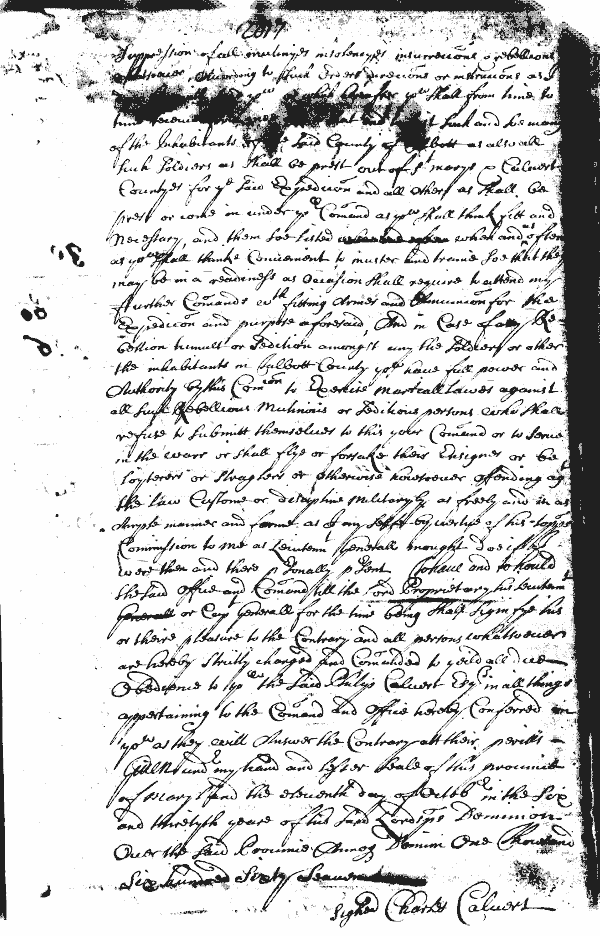 2017
Suppression of all mutinyes insolencyes insurrecõns & rebellions
whatsoever, according to such orders direccõns or instruccons as I
yow shall from time to
time receive such and soe many
of the Inhabitants of the said County of Talbott as also all
such Soldiers as shall be prest out of St maryes & Calvert
Countyes for ye said Expedicõn and all others as shall be
prest or come in under yor Comand as yow shall think fitt and
Necessary, and them soe listed when and as often
as yow shall thinke Convenient to muster and traine soe that they
may be in a readiness as Occasion shall require to attend my
further Comands wth fitting Armes and Amunicion for the
Expedicõn and purpose aforesaid, And in Case of any Re-
bellion tumult or Sedition amongst any the Soldiers or other
the inhabitants in Talbott County yow have full power and
Authority by this Comõn to Exercise martiall Lawes against
all such Rebellious Mutinous or Seditious persons who shall
refuse to submitt themselves to this your Comand or to serve
in the warr or shall flye or forsake their Ensignes or be
loyterers or straglers or otherwise howsoever offending agt
the Law Custome or discipline Military as freely and in as
Ample manner and forme as I my selfe by vertue of his Lopps
Commission to me as Lieutennt Generall mought doe if I
were then and there psonally psent To have and to hould
the said Office and Comand till the Lord Proprietary his Lieutennt
Generall or Capt Generall for the time being shall signifye his
or theire pleasure to the Contrary and all persons whatsoever
are hereby strictly charged and Comanded to yeild all due
Obedience to yow the said Philip Calvert Esqr in all things
appertaining to the Comand and Office hereby Conferred on
yow as they will Answer the Contrary att their perills
Given undr my hand and lesser Seale of this province
of Maryland the eleventh day of Octobr in the Six
and thirtyth yeare of his said Lordpps Dominion
Over the said Province Annoq Domini One Thousand
Six hundred Sixty Seaven
Signed Charles Calvert